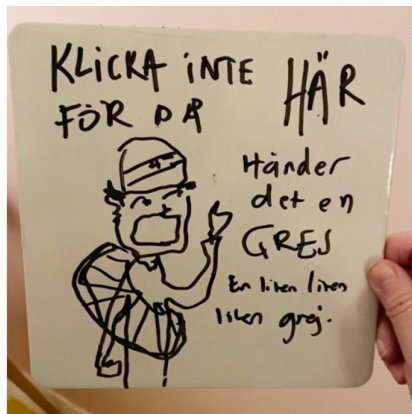 KLICKA iNTE HÄR
FÖR DÅ
Händer
det en
GREJ
En liten liten
liten grej.